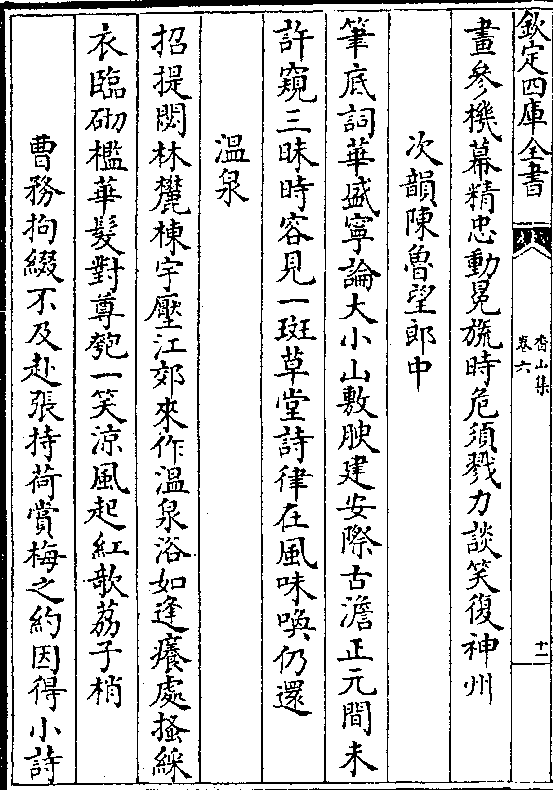 欽定四庫全書
香山集
卷六
十二
畫參機幕精忠動冕旒時危須戮力談笑復神州
次韻陳魯望郎中
筆底詞華盛寧論大小山敷腴建安際古澹正元間未
許窺三昧時容見一斑草堂詩律在風味喚仍還
溫泉
招提閟林麓棟宇壓江郊來作溫泉浴如逢癢處搔綵
衣臨砌檻華髮對尊匏一笑涼風起紅欹荔子梢
曹務拘綴不及赴張持荷賞梅之約因得小詩